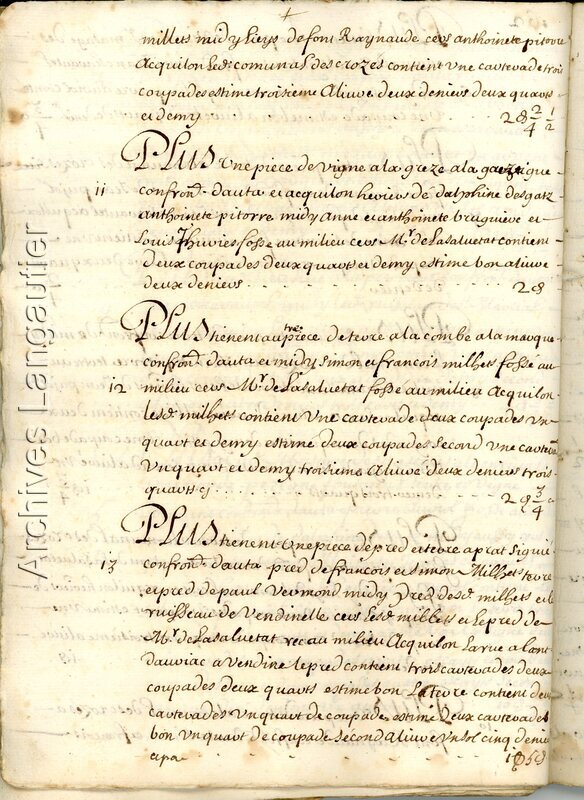 millets midy hiers de font Raynaude cers anthoinete pitorre
Acquilon Led. comunal des crozes contient Une carterade trois
coupades estime troisieme Aliure deux deniers deux quarts
et demy 2d 2/4 1/2
PLUS Une piece de vigne a la greze a la
11 confron. d'auta et acquilon heriers de dalphine desgatz
anthoinete pitorre midy Anne et anthoinete bruguiere et
Louis fosse au milieu cers Mr. de Lasaluetat contient
deux coupades deux quarts et demy estime bon aliure
deux deniers 2d
PLUS tienent autre piece de terre a la combe a la marque
confron. d'auta et midy simon et francois milhets fossé au
12 milieu cers Mr. de Lasaluetat fossé au milieu Acquilon
lesd. milhets contient Une carterade deux coupades Un
quart et demy estime deux coupades second Une carterade
Un quart et demy troisieme Aliure deux deniers trois
quarts cj 2d 3/4
PLUS tienent Une piece de pred et terre a prat
13 confron. d'auta pred de francois et simon Milhets terre
et pred de paul Vermond midy pred desd. milhets et le
ruisseau de Vendinelle cers Lesd. millets et le pred de
Mr. de Lasaluetat rec au milieu Acquilon La rue alant
dauriac a Vendine le pred contient trois carterades deux
coupades deux quarts estime bon La terre contient deux
carterades Un quart de coupade estime deux carterades
bon Un quart de coupade second Aliure Un sol cinq deniers
et pa 1s 5d
Archives Langautier